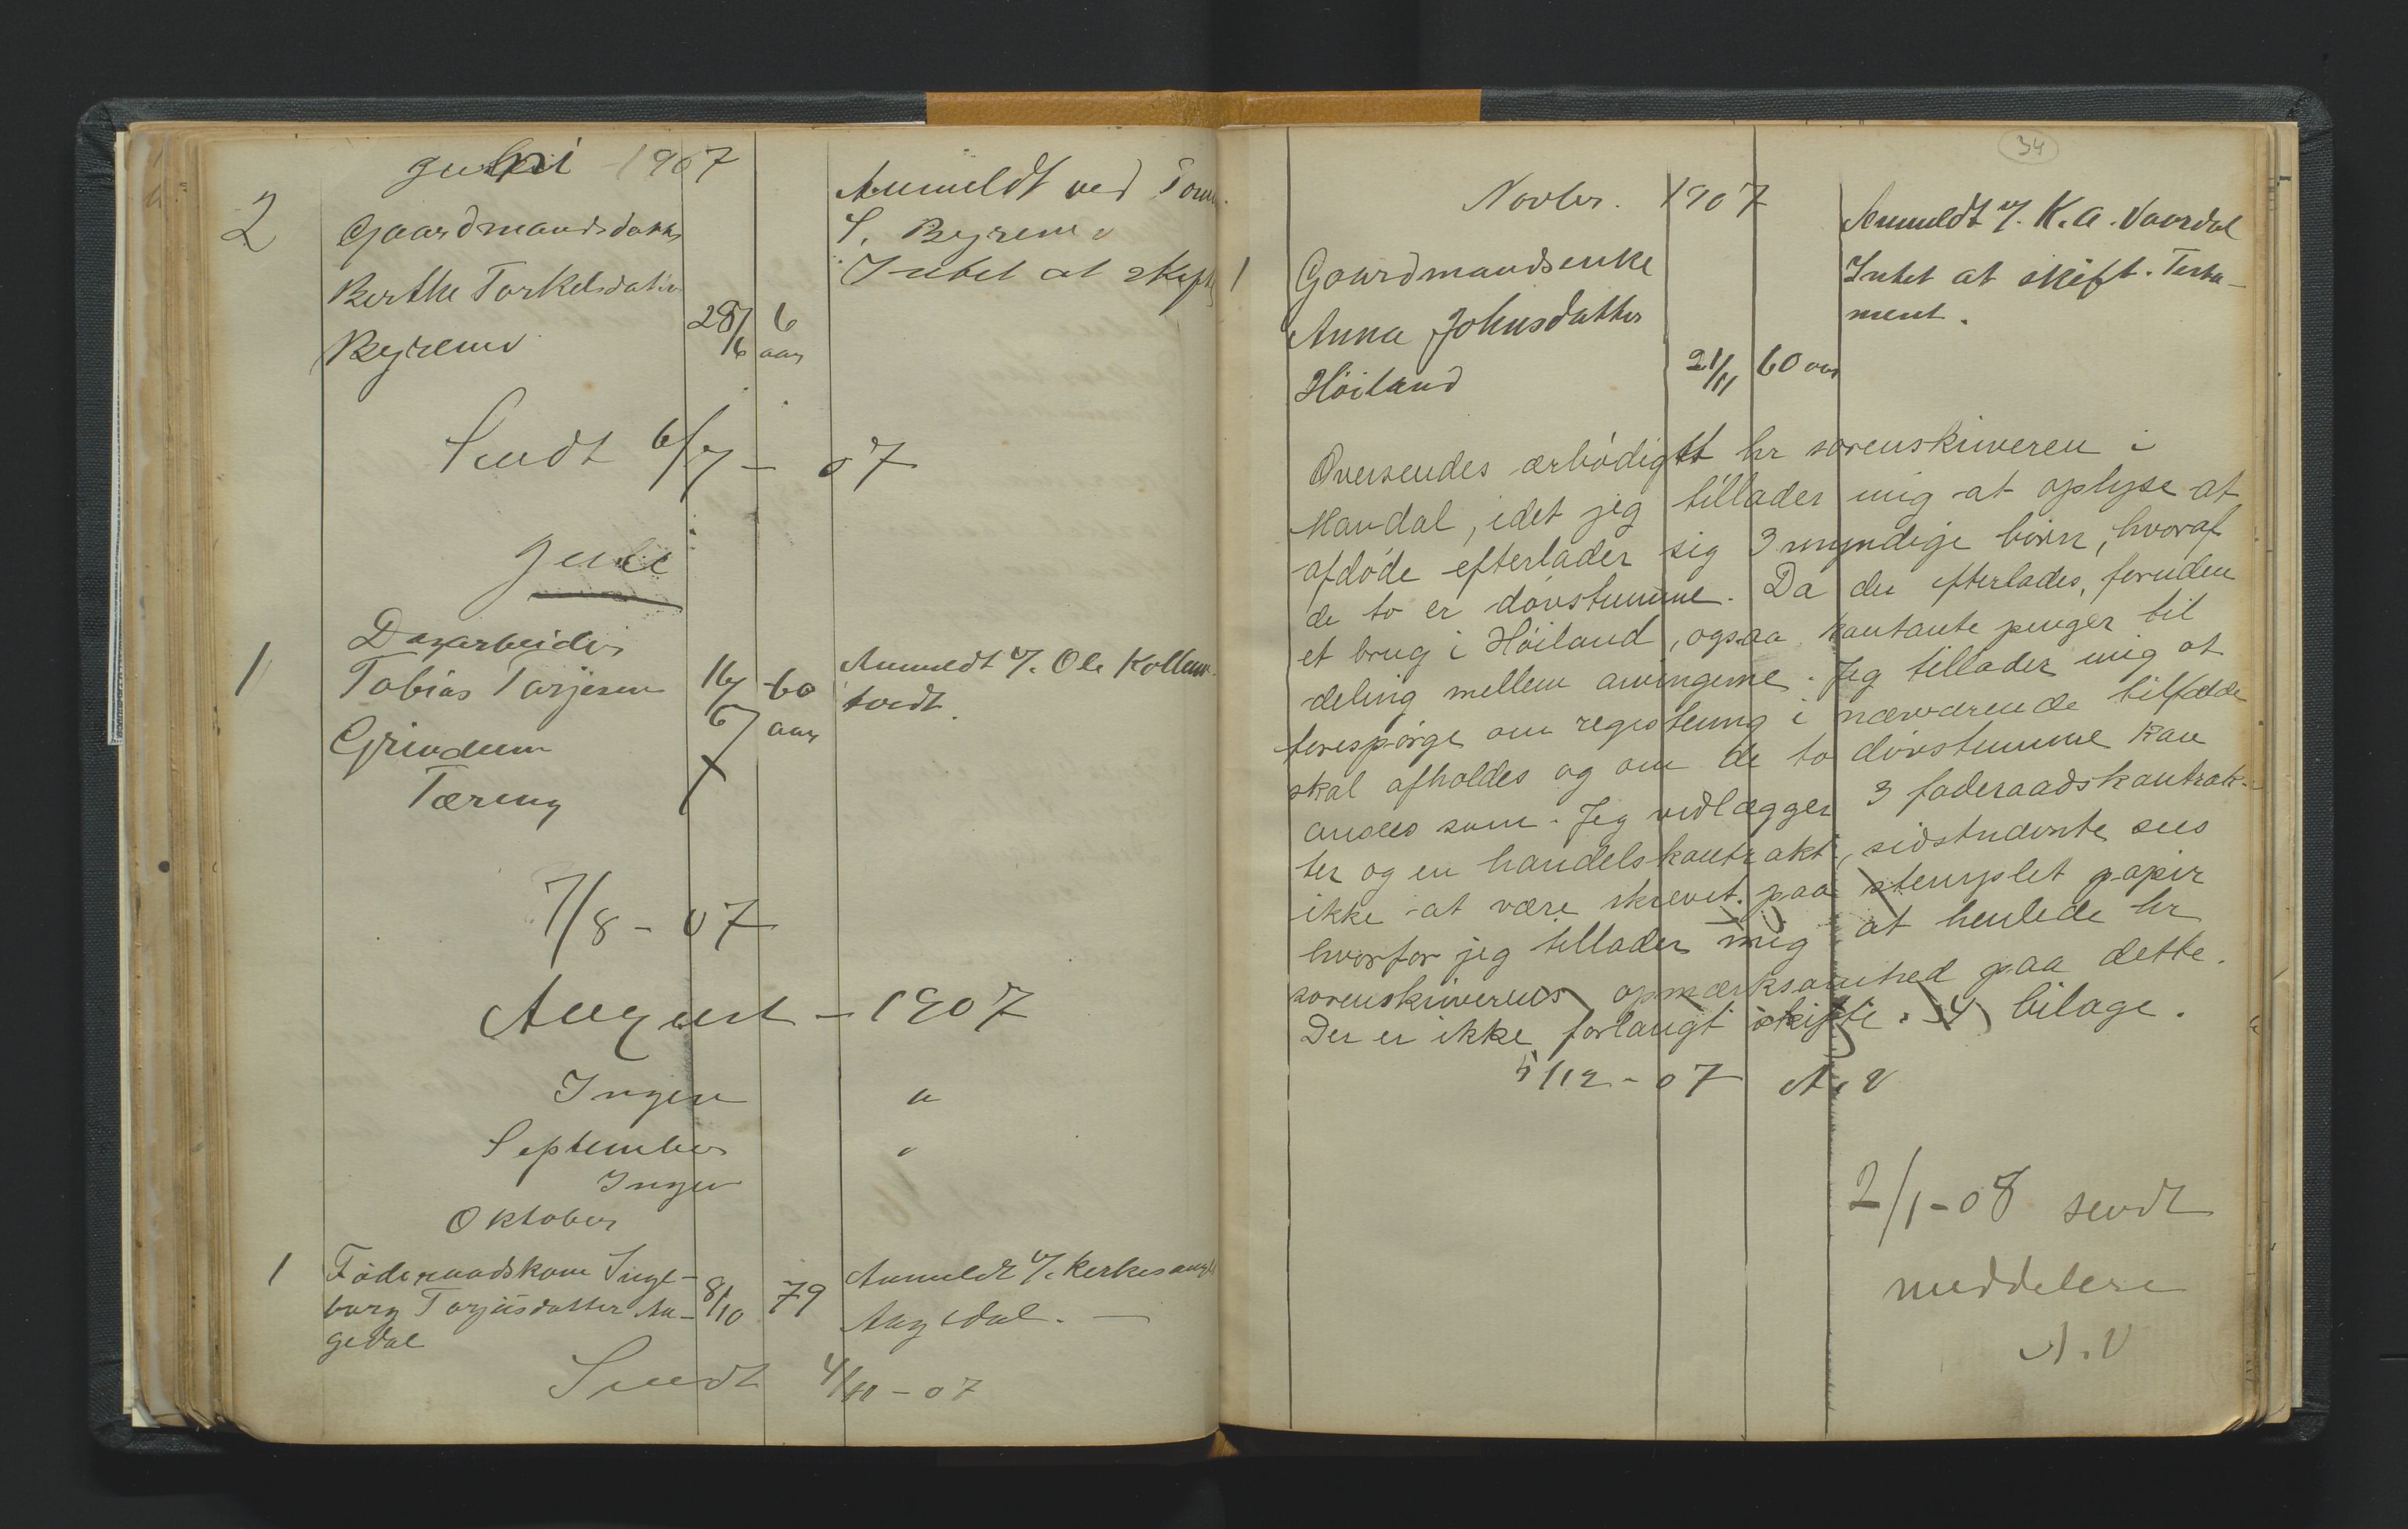 Juni 1907
2
Gaardmandsdatter
Berthe Torkelsdatter
Byremo
28/6
6 aar
Anmeldt ved Tom
S. Byremo
Intet at skifte
Sendt 6/7 - 07
Juli
1
Dagarbeider
Tobias Tarjesen
Grindum
Tæring
16/6
60 aar
Anmeldt v/. Ole Kollem-
tvedt.
7/8 - 07
August - 1907
Ingen "
September "
Ingen
Oktober
1
Føderaadskone Inge-
borg Tarjeisdatter Aa-
gedal
8/10
79
Anmeldt v/. Kirkesanger
Aagedal. —
Sendt 4/10 - 07
34
Novbr. 1907
1
Gaardmandsenke
Anna Johnsdatter
Höiland
21/11
60 aar
Anmeldt v/. K. A. Vaordal
Intet at skift. Testa-
ment.
Oversendes ærbödigst hr sorenskriveren i
Mandal, idet jeg tillader mig at oplyse at
afdöde efterlader sig 3 myndige börn, hvoraf
de to er dövstumme. Da der efterlades, foruden
et brug i Höiland, ogsaa kontante penger til
deling mellem arvingerne. Jeg tillader mig at
forespörge om registrering i nærværende tilfælde
skal afholdes og om de to dövstumme kan
ansees som. Jeg vedlægger 3 föderaadskontrak-
ter og en handelskontrakt, sidstnævnte sees
ikke at være skrevet paa stemplet papir
hvorfor jeg tillader mig at henlede hr
sorenskriverens opmærksomhed paa dette.
Der er ikke forlangt skifte. 4 bilage.
5/12 - 07 A. V
2/1 - 08 sendt
meddelere
A. V